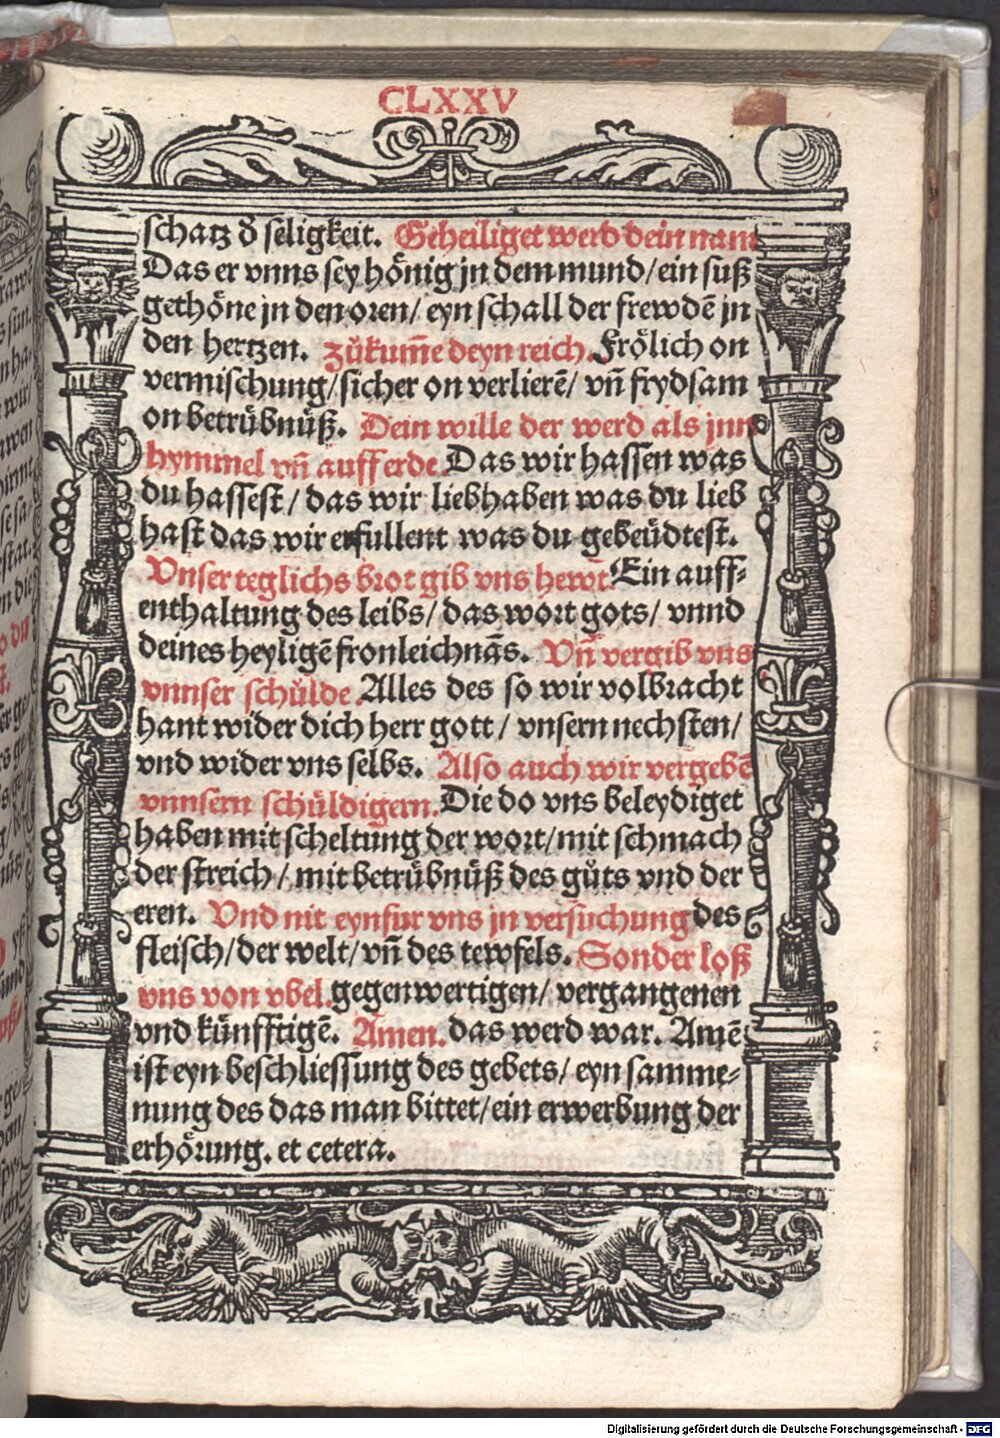 CLXXV
schatz d̕ seligkeit. Geheiliget werd dein nam
Das er vnns sey hönig jn dem mund/ ein suß
gethöne jn den oren/ eyn schall der frewdē jn
den hertzen. zůkum̄e deyn reich. Frölich on
vermischung/ sicher on verlierē/ vn̄ frydsam
on betrübnüß. Dein wille der werd als jnn
hymmel vn̄ auff erde. Das wir hassen was
du hassest/ das wir liebhaben was du lieb
hast das wir erfullent was du gebeüdtest.
Vnser teglichs brot gib vns hewt. Ein auff⸗
enthaltung des leibs/ das wort gots/ vnnd
deines heyligē fronleichnās. Vn̄ vergib vns
vnnser schülde. Alles des so wir volbracht
hant wider dich herr gott/ vnsern nechsten/
vnd wider vns selbs. Also auch wir vergebē
vnnsern schüldigern. Die do vns beleydiget
haben mit scheltung der wort/ mit schmach
der streich/ mit betrübnüß des gůts vnd der
eren. Vnd nit eynfur vns jn versuchung des
fleisch/ der welt/ vn̄ des tewfels. Sonder loß
vns von vbel. gegenwertigen/ vergangenen
vnd künfftigē. Amen. das werd war. Amē
ist eyn beschliessung des gebets/ eyn samme⸗
nung des das man bittet/ ein erwerbung der
erhörung. et cetera.
Digitalisierung gefördert durch die Deutsche Forschungsgemeinschaft - DFG